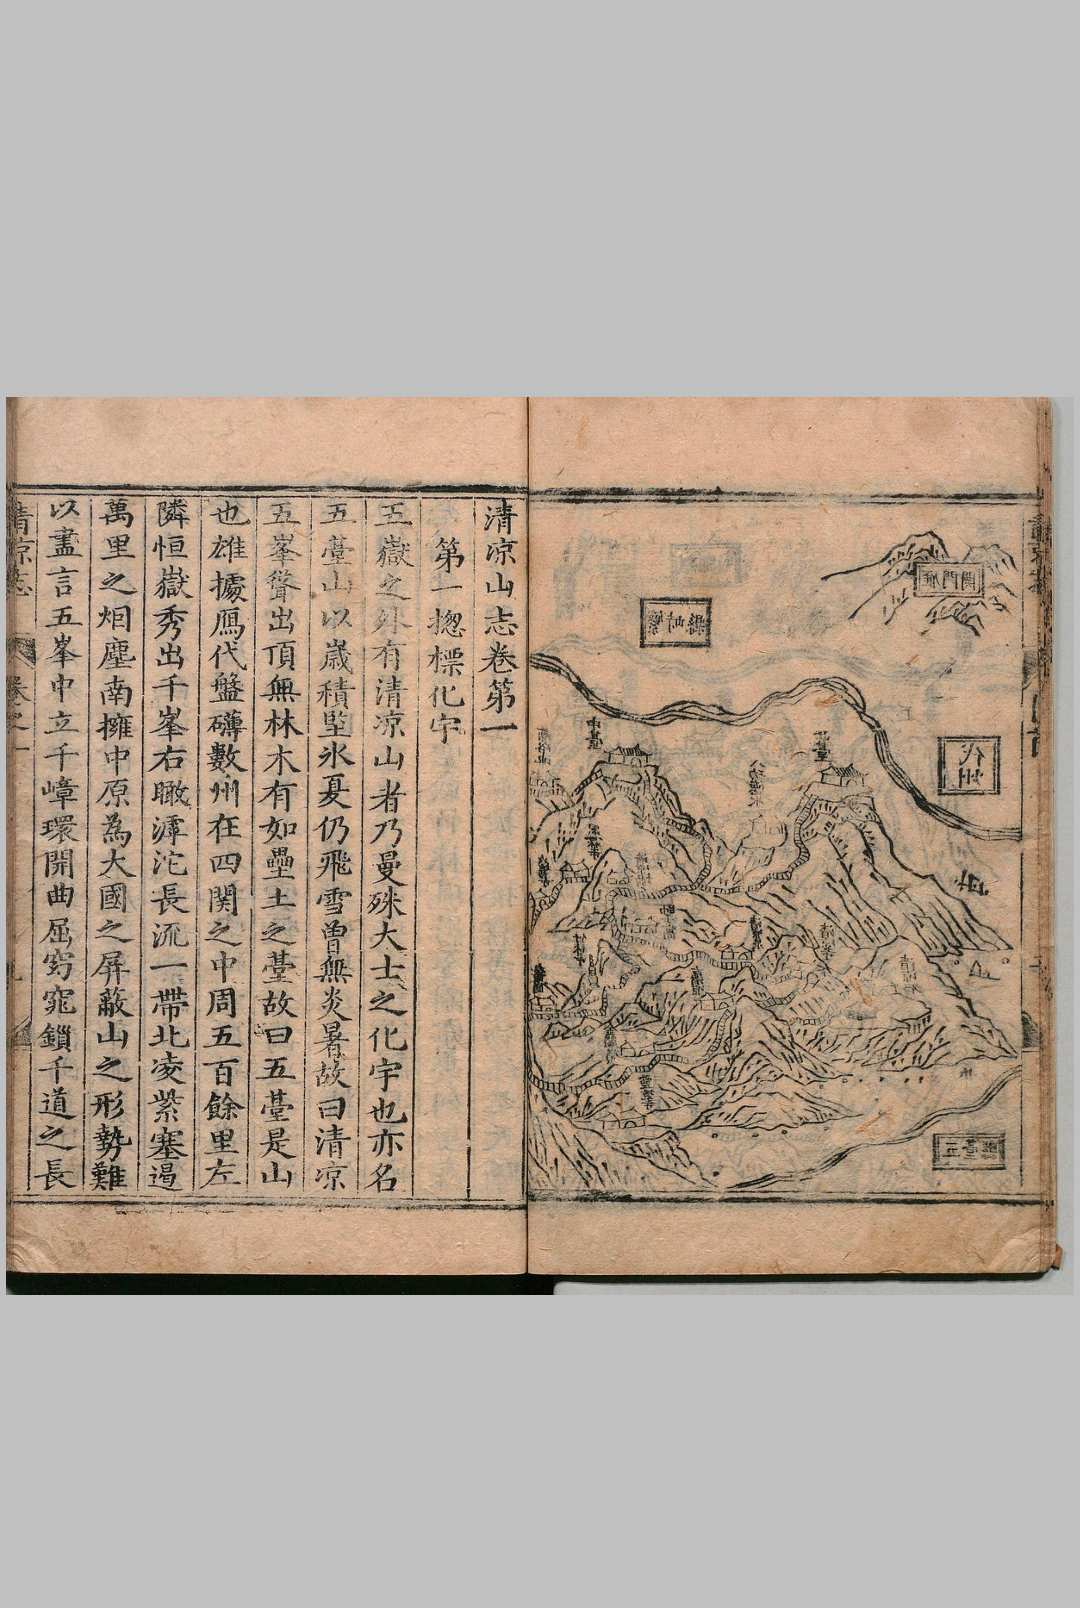 雁門關
繁峙縣
代州
五臺縣
北臺
中臺
清凉山志卷第一
第一揔標化宇
五嶽之外有清凉山者乃曼殊大士之化宇也亦名
五臺山以歲積堅氷夏仍飛雪曾無炎暑故曰清凉
五峯聳出頂無林木有如壘土之臺故曰五臺是山
也雄據鴈代盤礴數州在四関之中周五百餘里左
隣恒嶽秀出千峯右瞰滹沱長流一帶北凌紫塞遏
萬里之烟塵南擁中原為大國之屏蔽山之形勢難
以盡言五峯中立千嶂環開曲屈窈窕鎖千道之長
清凉志 卷之一 九